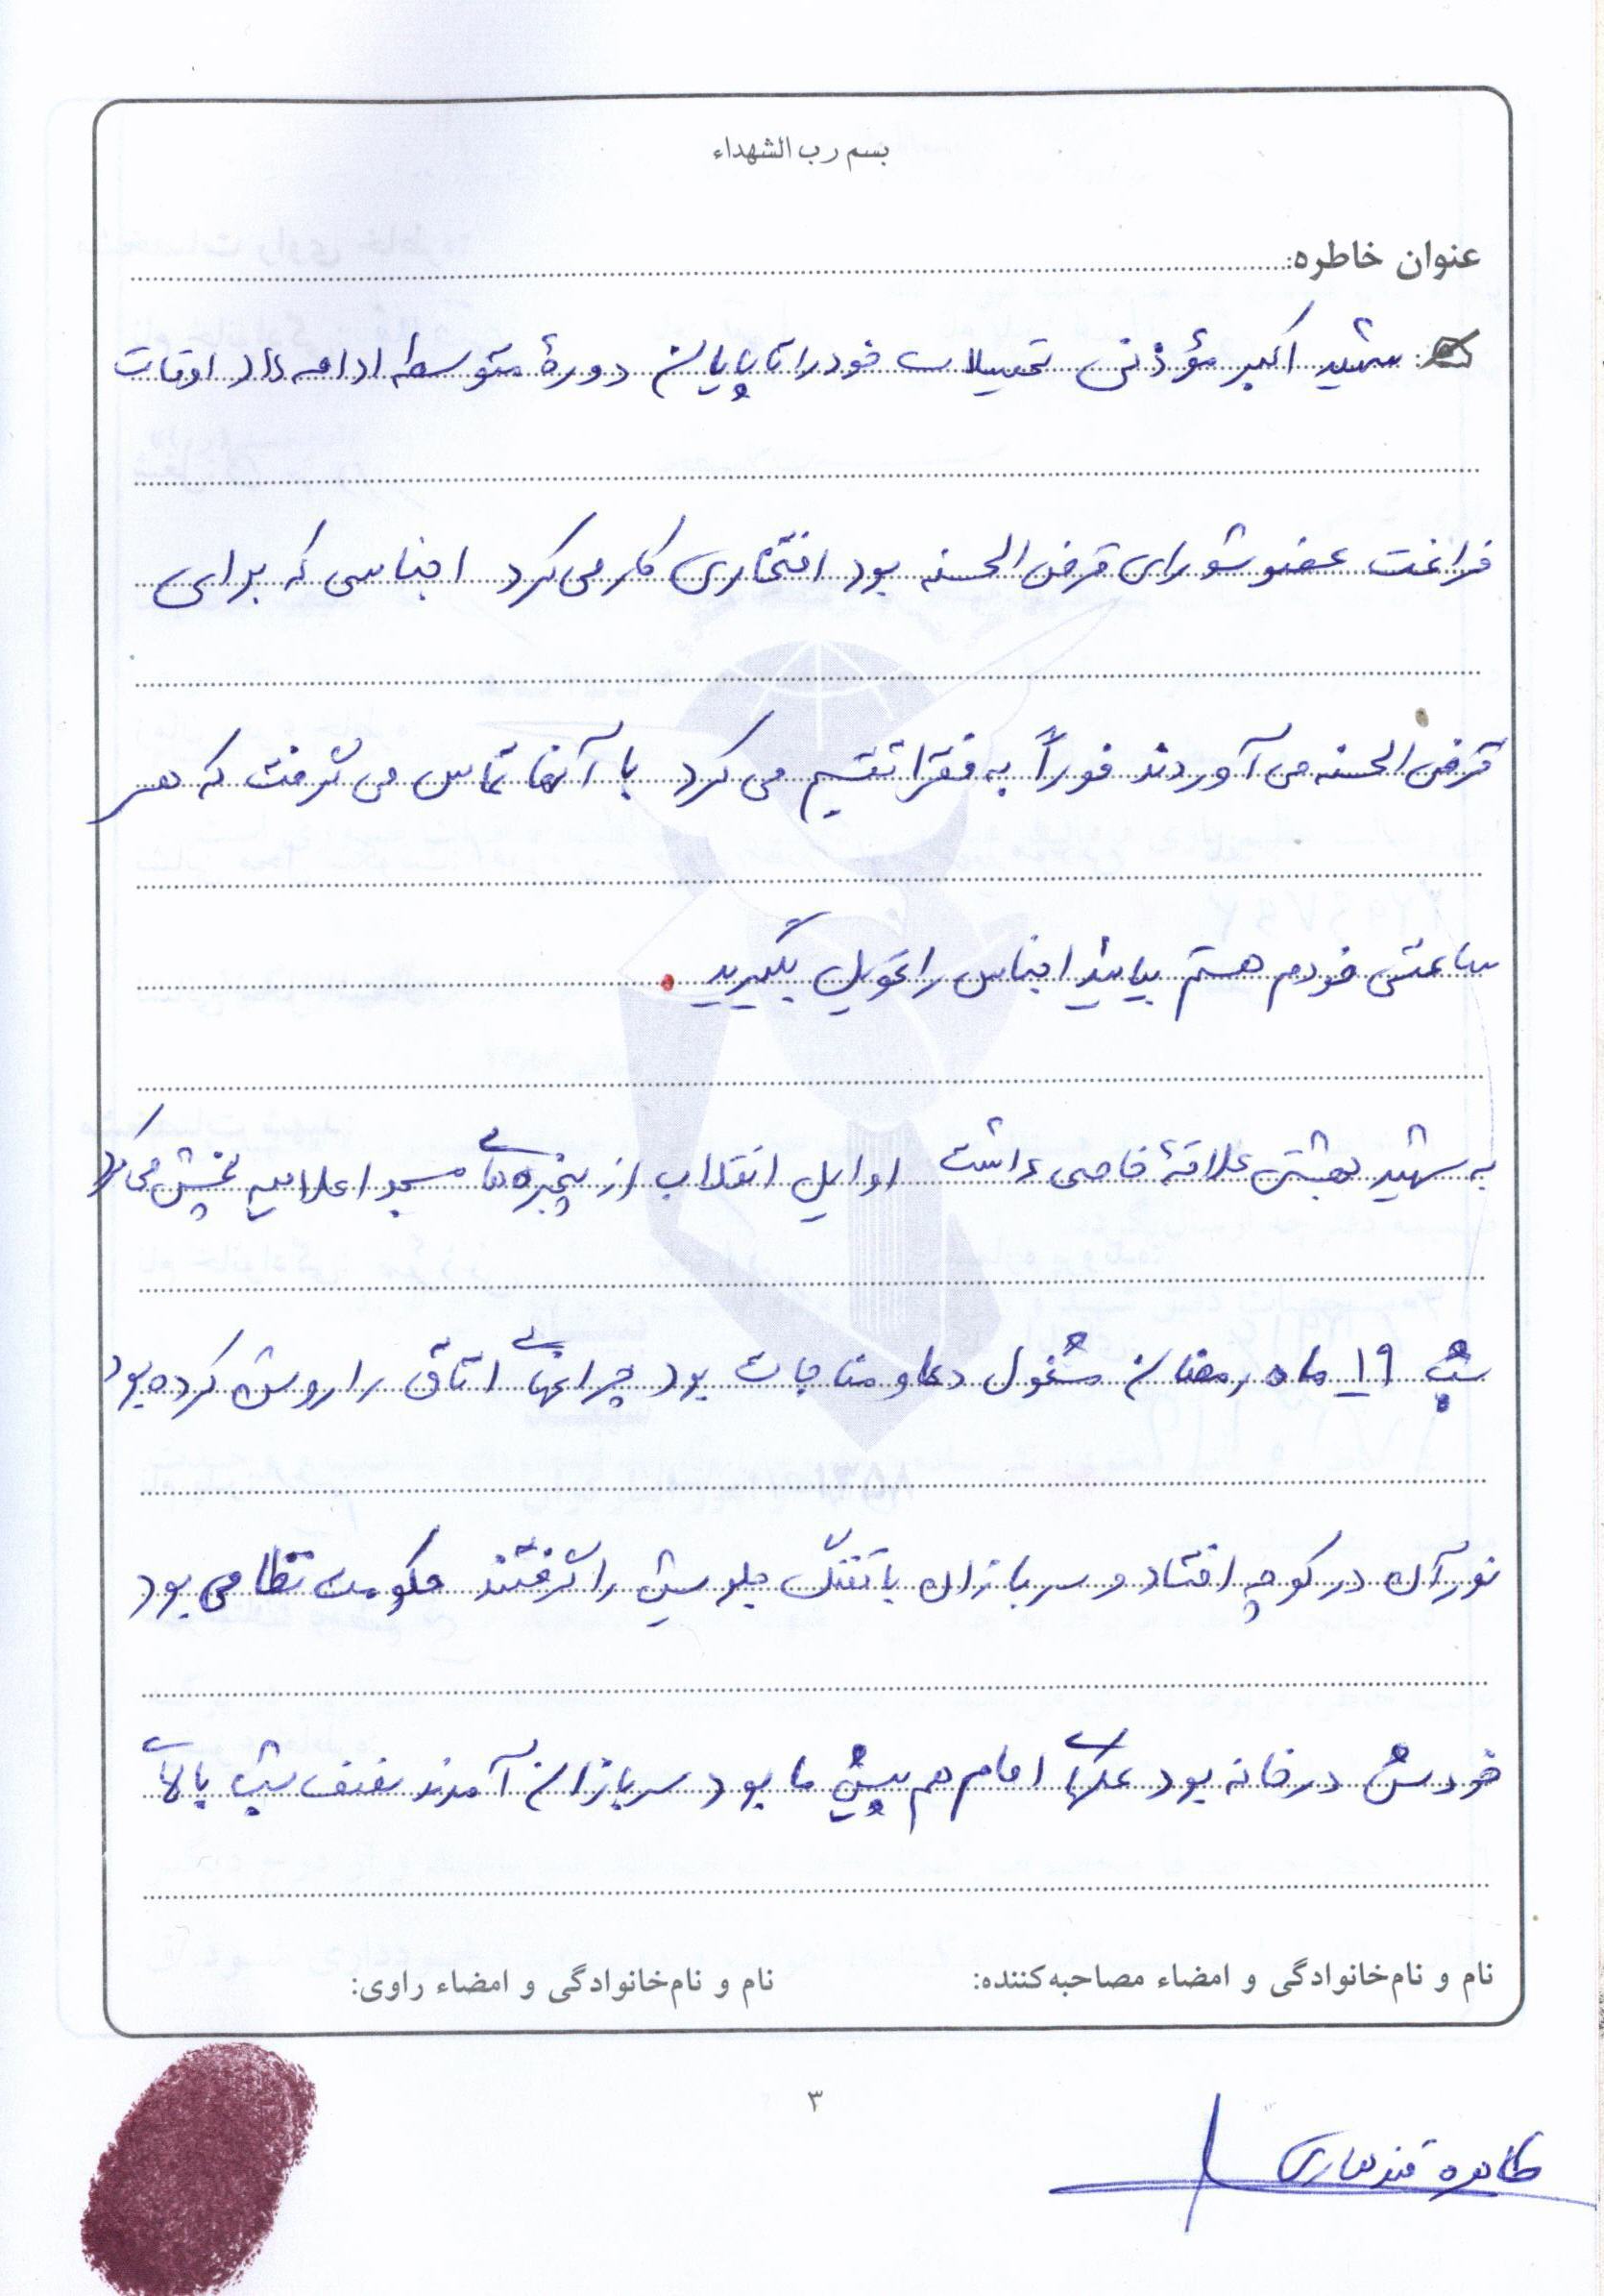 بسم رب الشهداء
عنوان خاطره:
شهید اکبر مؤذنی تحصیلات خود را تا پایان دورۀ متوسطه ادامه داد اوقات
فراغت عضو شورای قرض الحسنه بود افتخاری کار می کرد اجناسی که برای
قرض الحسنه می آوردند فوراً به فقرا تقسیم می کرد با آنها تماس می گرفت که هر
ساعتی خودم هستم بیائید اجناس را تحویل بگیرید.
به شهید بهشتی علاقۀ خاصی داشت اوایل انقلاب از پنجره های مسجد اعلامیه پخش می کرد
شب ۱۹ ماه رمضان مشغول دعا و مناجات بود چراغهای اتاق را روشن کرده بود
نور آن در کوچه افتاد و سربازان با تفنگ جلویش را گرفتند حکومت نظامی بود
خودش در خانه بود عکسهای امام هم پیش ما بود سربازان آمدند نصف شب بالای
نام و نام‌خانوادگی و امضاء مصاحبه‌کننده:
نام و نام‌خانوادگی و امضاء راوی:
۳
طاهره قندهاری